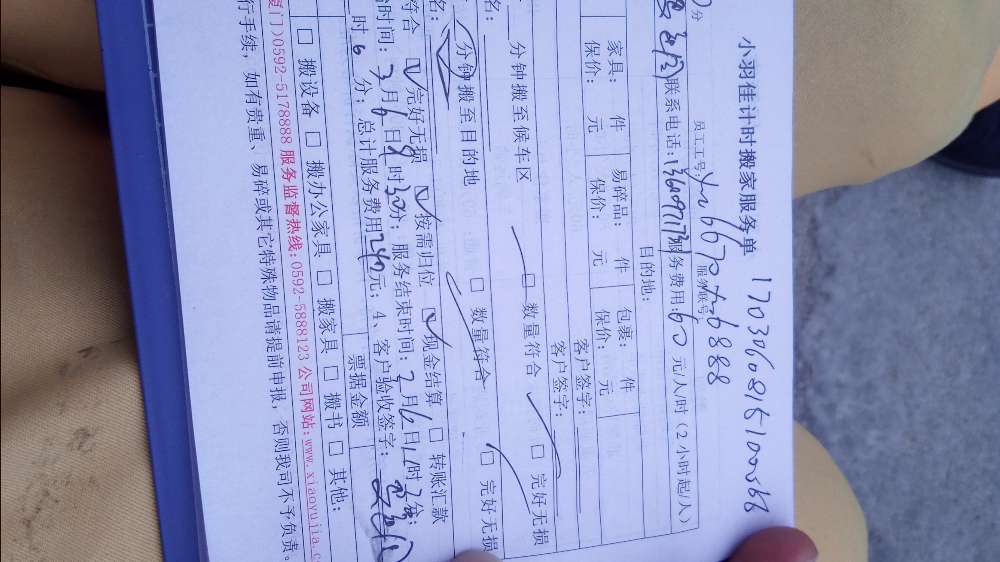 小羽佳计时搬家服务单
分
员工工号
服务账号
联系电话: 服务费用:60 元/人/时(2小时起/人)
目的地:
家具: 件 易碎品: 件 包裹: 件
保价: 元 保价: 元 保价: 元
客户签字:
客户签字:
分钟搬至候车区 □ 数量符合 □ 完好无损
名:
分钟搬至目的地 □ 数量符合 □ 完好无损
名:
符合 完好无损 按需归位 现金结算 □ 转账汇款
时间:3月6日8时30分; 服务结束时间:3月6日 时 分;
时6分; 总计服务费用240元; 4、客户验收签字:
票据金额
□ 搬设备 □ 搬办公家具 □ 搬家具 □ 搬书 □ 其他:
门)0592-5178888 服务监督热线:0592-5888123 公司网站:www.xiaoyujia.c
行手续, 如有贵重、易碎或其它特殊物品请提前申报, 否则我司不予负责。